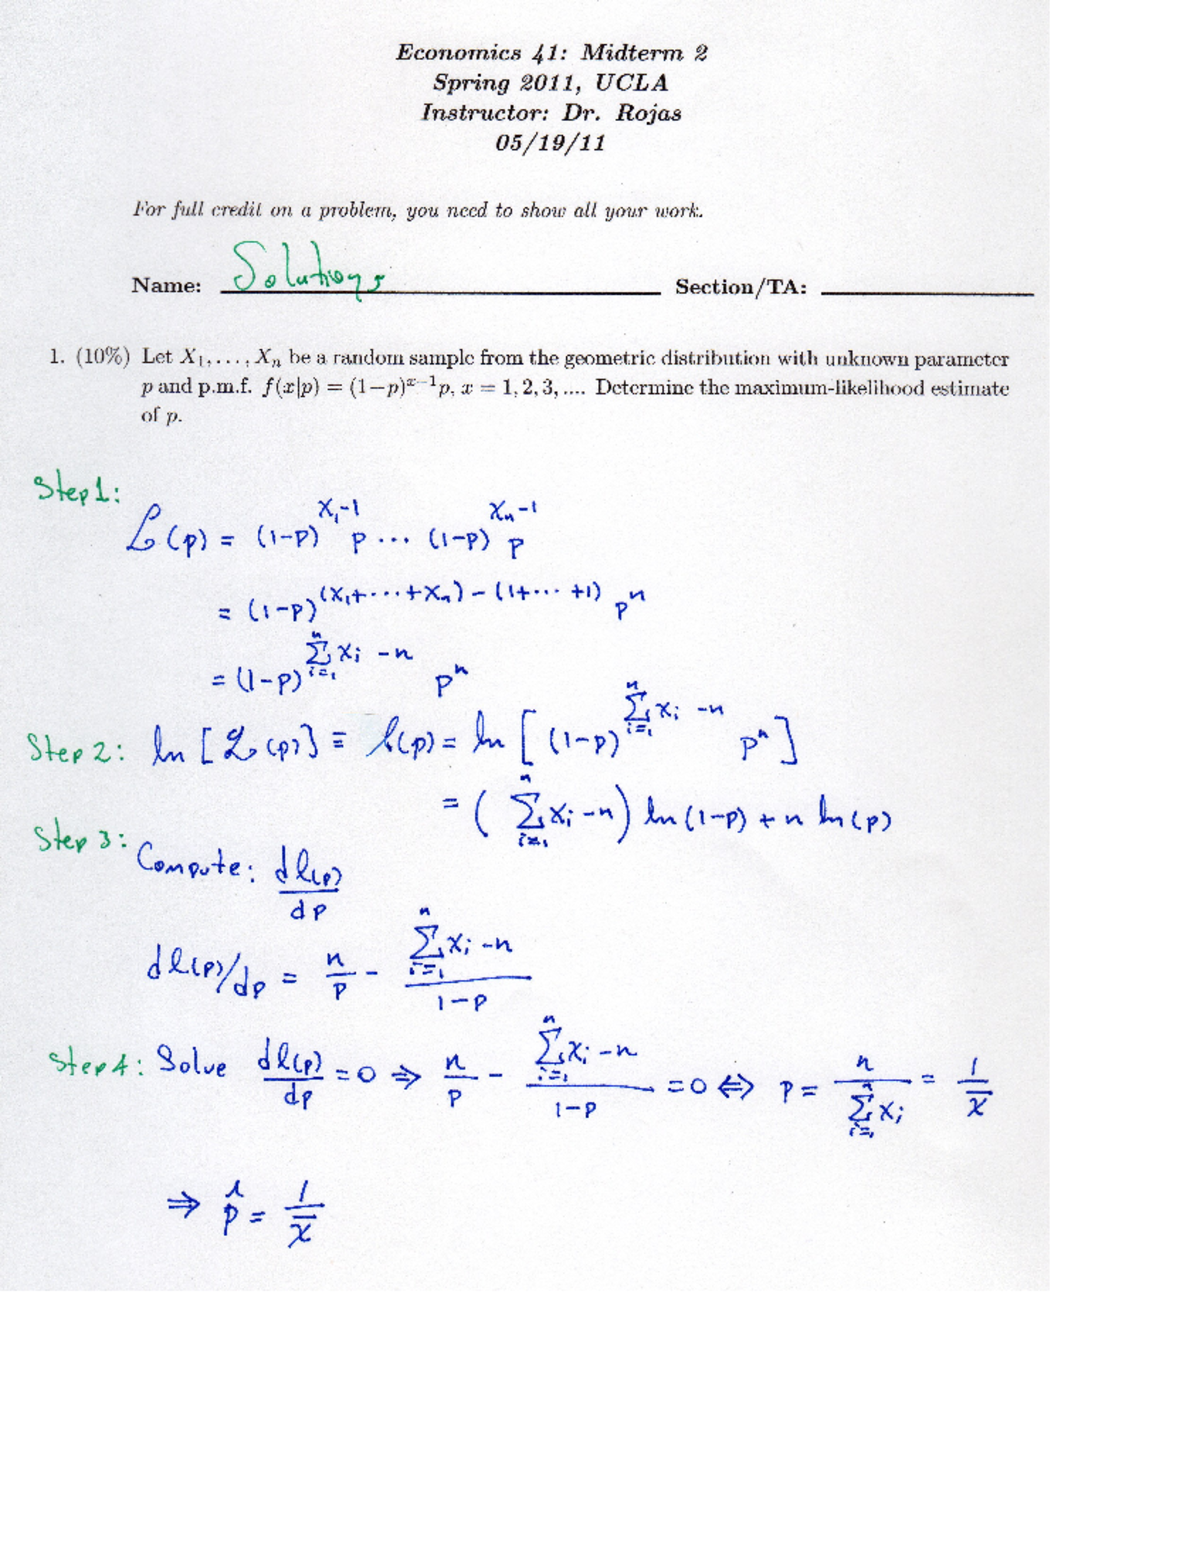 Economics 41: Midterm 2
Spring 2011, UCLA
Instructor: Dr. Rojas
05/19/11
For full credit on a problem, you need to show all your work.
Name: Solutions Section/TA:
1. (10%) Let X₁, . . . , Xₙ be a random sample from the geometric distribution with unknown parameter
p and p.m.f. f(x|p) = (1−p)^{x−1}p, x = 1, 2, 3, .... Determine the maximum-likelihood estimate
of p.
Step 1:
ℒ(p) = (1-p)^{X₁-1} p ... (1-p)^{Xₙ-1} p
= (1-p)^{(X₁+...+Xₙ) - (1+...+1)} pⁿ
= (1-p)^{∑_{i=1}^{n} Xᵢ - n} pⁿ
Step 2: ln [ℒ(p)] ≡ l(p) = ln [(1-p)^{∑_{i=1}^{n} Xᵢ - n} pⁿ]
= (∑_{i=1}^{n} Xᵢ - n) ln(1-p) + n ln(p)
Step 3: Compute: dl(p)/dp
dl(p)/dp = n/p - (∑_{i=1}^{n} Xᵢ - n)/(1-p)
Step 4: Solve dl(p)/dp = 0 ⇒ n/p - (∑_{i=1}^{n} Xᵢ - n)/(1-p) = 0 ⇔ p = n/(∑_{i=1}^{n} Xᵢ) = 1/x̄
⇒ p̂ = 1/x̄